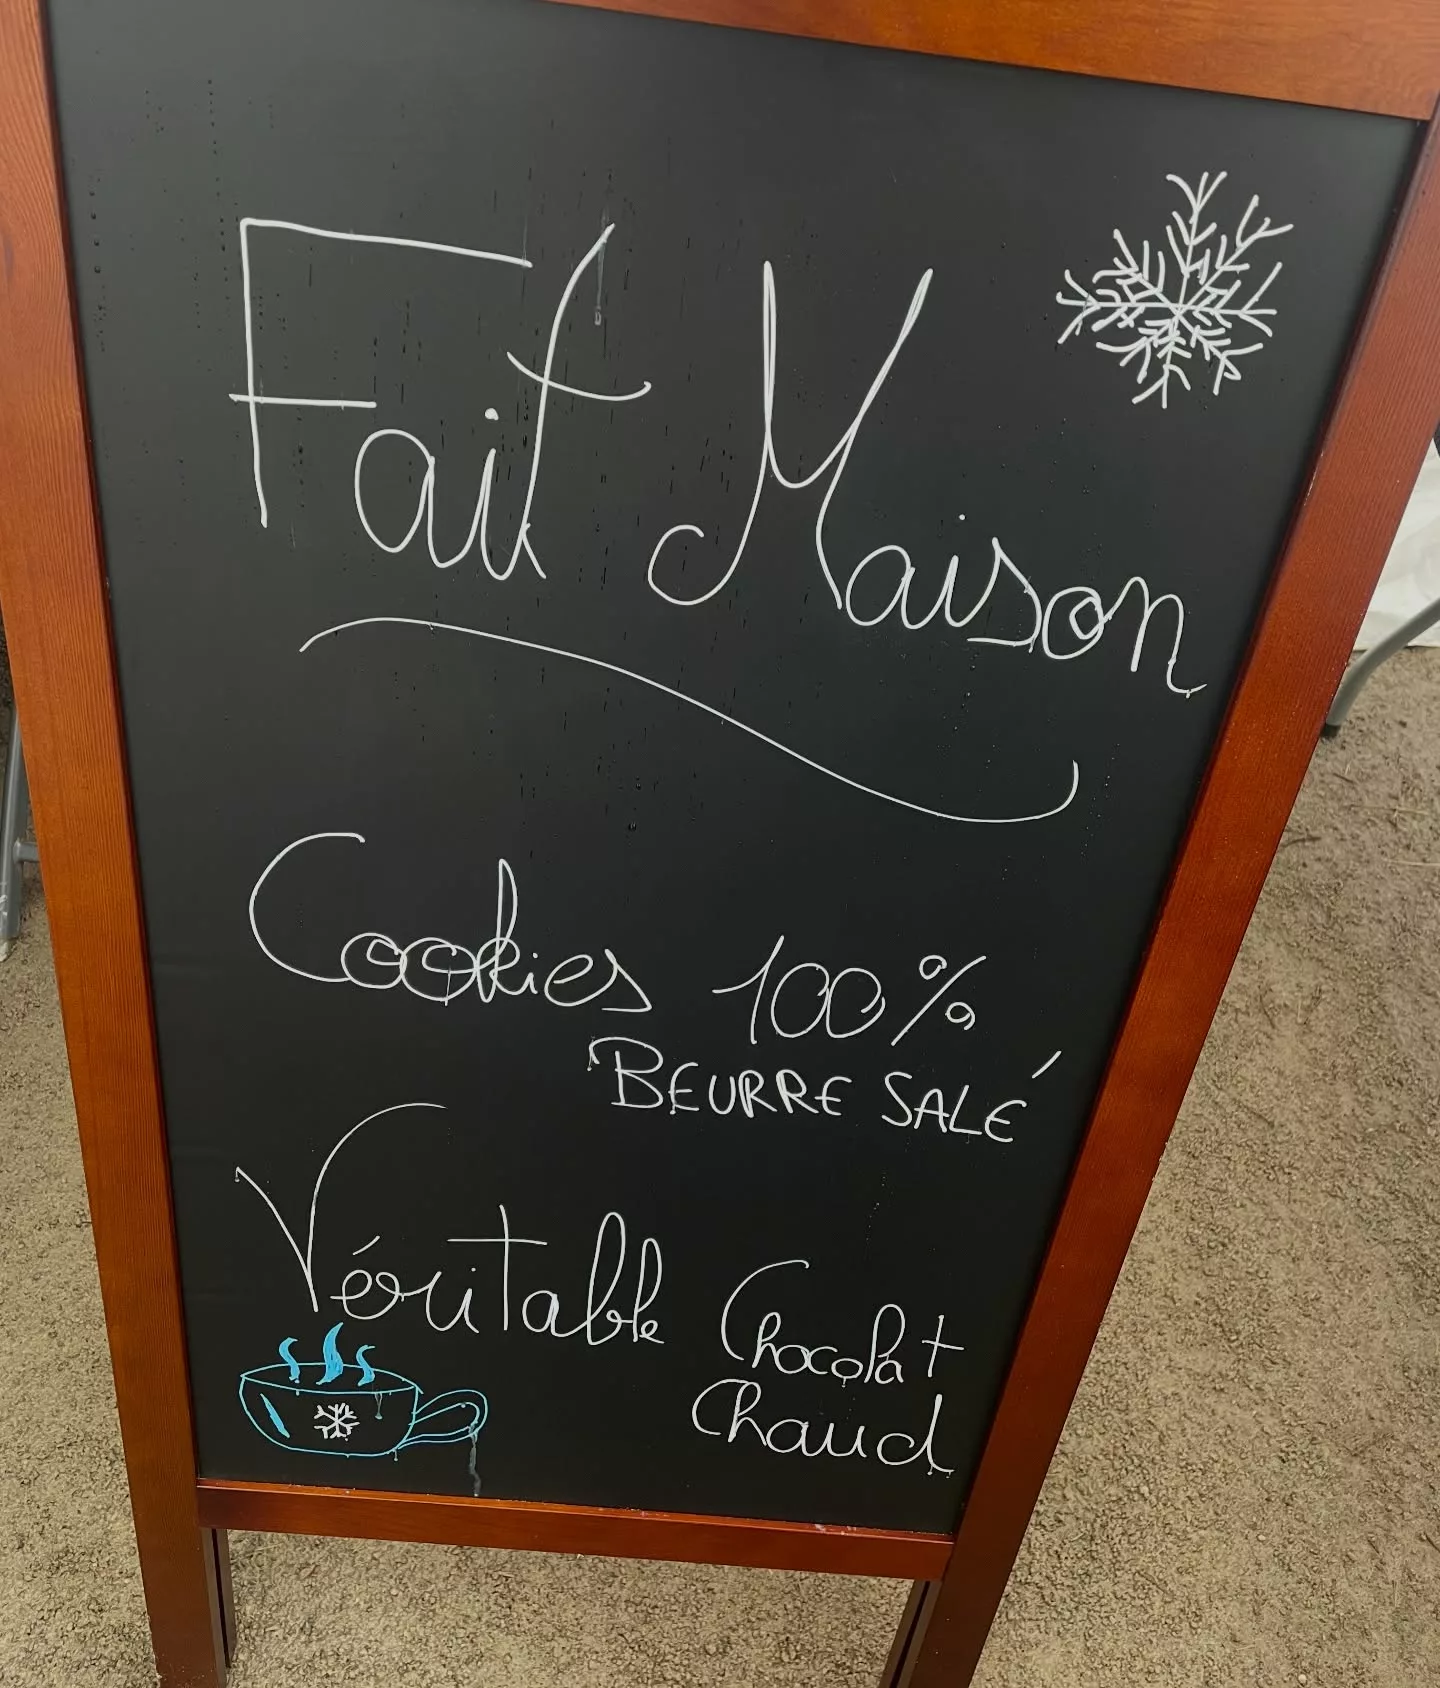 Fait Maison
Cookies 100%
BEURRE SALÉ
Véritable Chocolat
Chaud